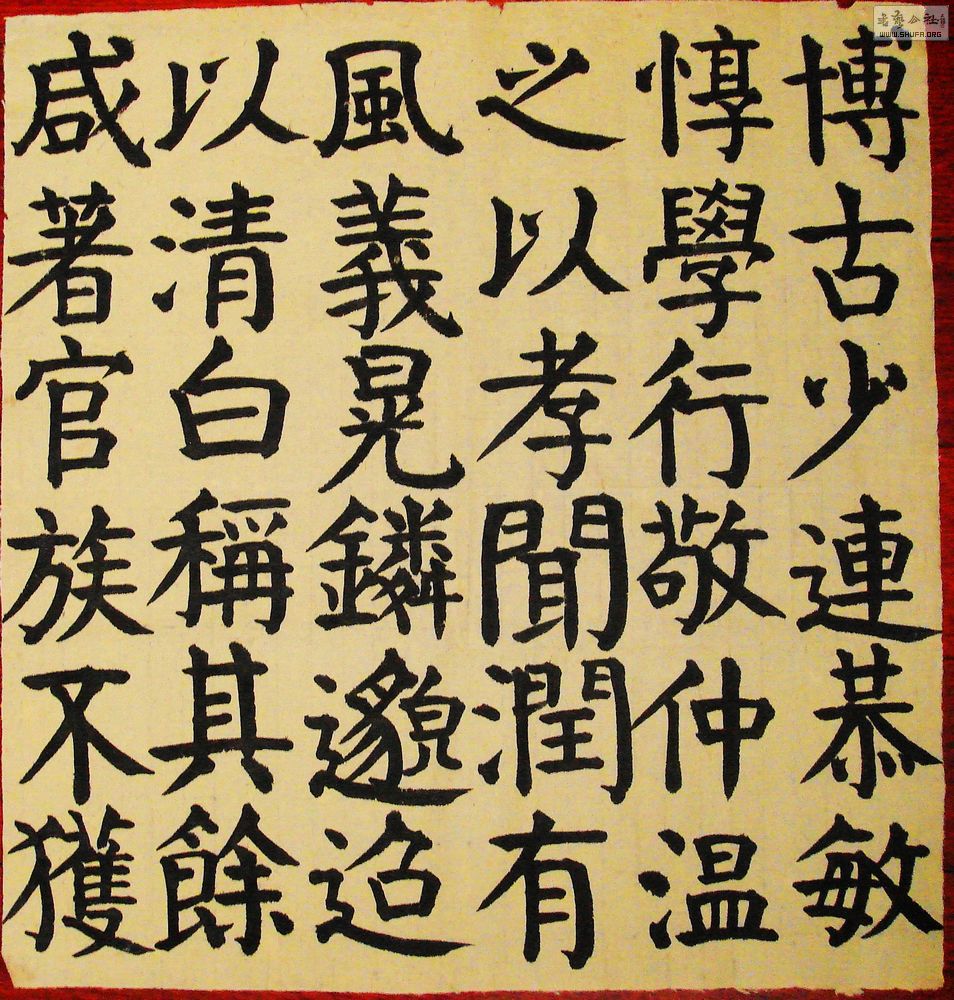 博古少連恭敏
惇學行敬仲温
之以孝聞潤有
風義晃鏻邈迢
以清白稱其餘
咸著官族不獲
書藝公社
WWW.SHUFA.ORG